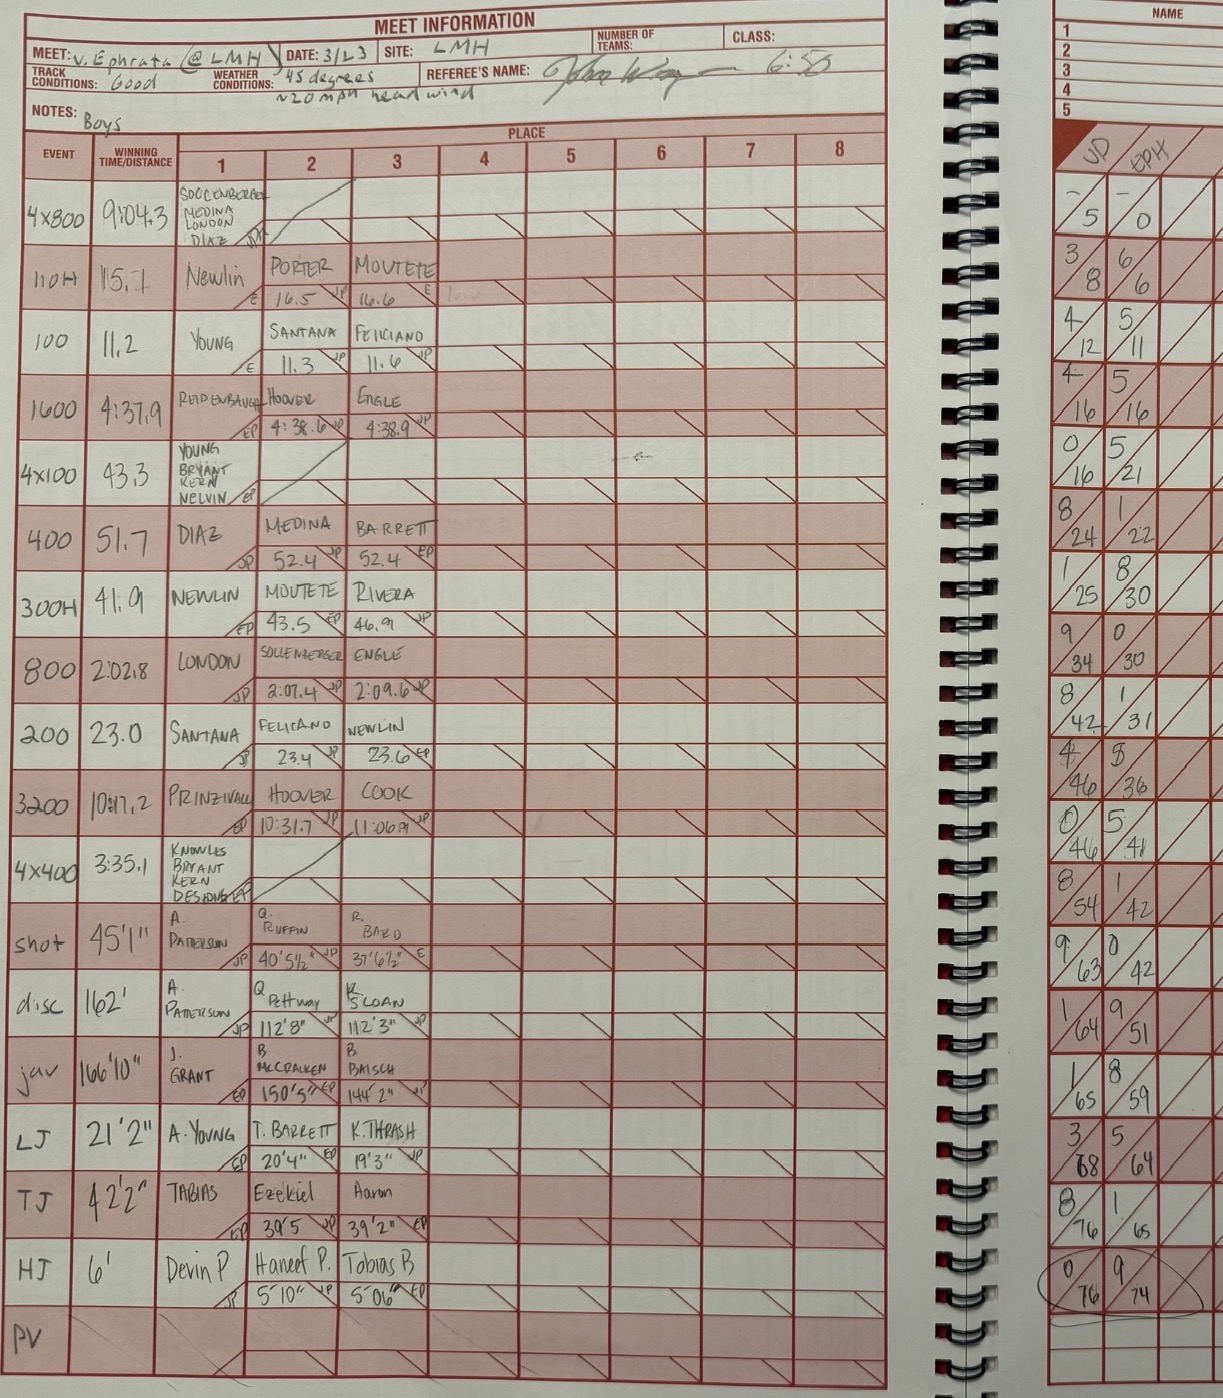 MEET INFORMATION
MEET: v. Ephrata (@ LMH) DATE: 3/23 SITE: LMH NUMBER OF TEAMS: CLASS:
TRACK CONDITIONS: Good WEATHER CONDITIONS: 45 degrees ~20 mph head wind REFEREE'S NAME: 6:50
NOTES: Boys
EVENT WINNING TIME/DISTANCE PLACE
1 2 3 4 5 6 7 8
4x800 9:04.3 SOLLENBERGER MEDINA LONDON DIAZ JP
110H 15.7 Newlin E PORTER 16.5 JP MOUTETE 16.6 E
100 11.2 YOUNG E SANTANA 11.3 JP FELICIANO 11.6 JP
1600 4:37.9 REIDENBAUGH EP HOOVER 4:38.6 JP ENGLE 4:38.9 JP
4x100 43.3 YOUNG BRYANT KERN NELVIN EP
400 51.7 DIAZ JP MEDINA 52.4 JP BARRETT 52.4 EP
300H 41.9 NEWLIN EP MOUTETE 43.5 EP RIVERA 46.9 JP
800 2:02.8 LONDON JP SOLLENBERGER 2:07.4 JP ENGLE 2:09.6 JP
200 23.0 SANTANA JP FELICANO 23.4 JP NEWLIN 23.6 EP
3200 10:17.2 EP HOOVER 10:31.7 JP COOK 11:06.9 JP
4x400 3:35.1 KNOWLES BRYANT KERN EP
shot 45'1" A. PATTERSON JP Q. RUFFIN 40'5½" JP R. BARD 37'6½" E
disc 162' A. PATTERSON JP Q Pettway 112'8" JP K SLOAN 112'3" JP
jav 166'10" J. GRANT EP B McCRACKEN 150'5" EP B BAISCH 144'2" JP
LJ 21'2" A. YOUNG EP T. BARRETT 20'4" EP K. THRASH 19'3" JP
TJ 42'2" TABIAS EP Ezekiel 39'5 JP Aaron 39'2" EP
HJ 6' Devin P JP Haneef P. 5'10" JP Tobias B 5'06" EP
PV
NAME
1
2
3
4
5
JP EPH
-/5 -/0
3/8 6/6
4/12 5/11
4/16 5/16
0/16 5/21
8/24 1/22
1/25 8/30
9/34 0/30
8/42 1/31
4/46 5/36
0/46 5/41
8/54 1/42
9/63 0/42
1/64 9/51
1/65 8/59
3/68 5/64
8/76 1/65
0/76 9/74